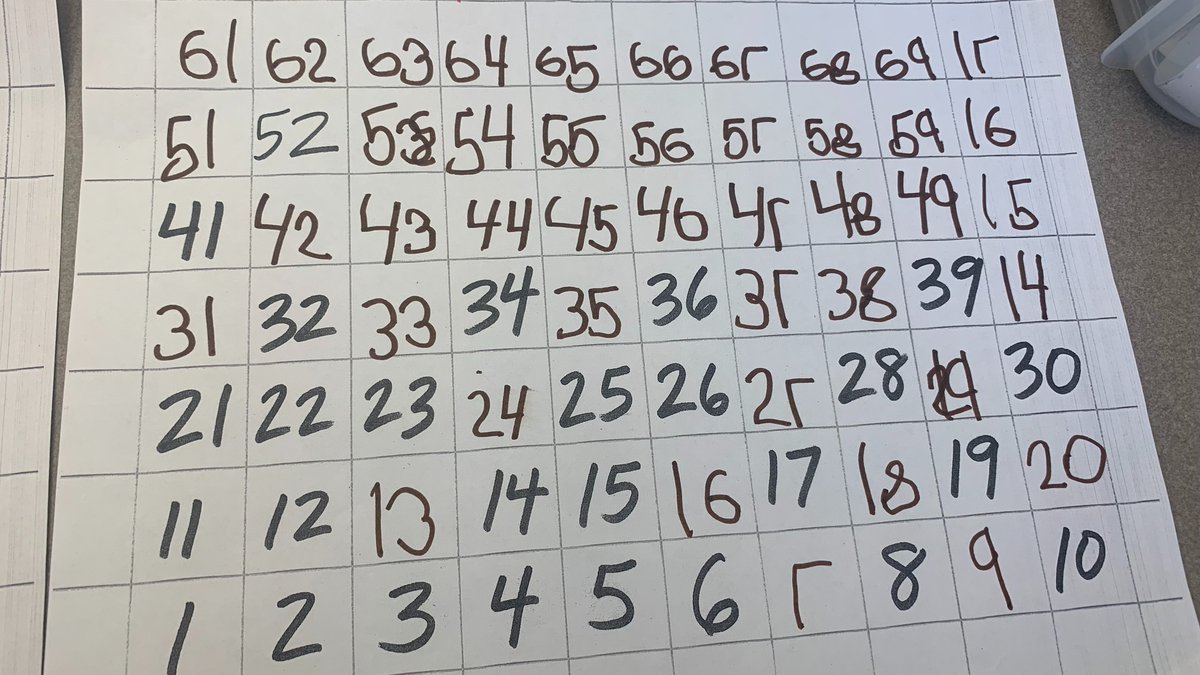 61 62 63 64 65 66 67 68 69 17
51 52 53 54 55 56 57 58 59 16
41 42 43 44 45 46 47 48 49 15
31 32 33 34 35 36 37 38 39 14
21 22 23 24 25 26 27 28 29 30
11 12 13 14 15 16 17 18 19 20
1 2 3 4 5 6 7 8 9 10